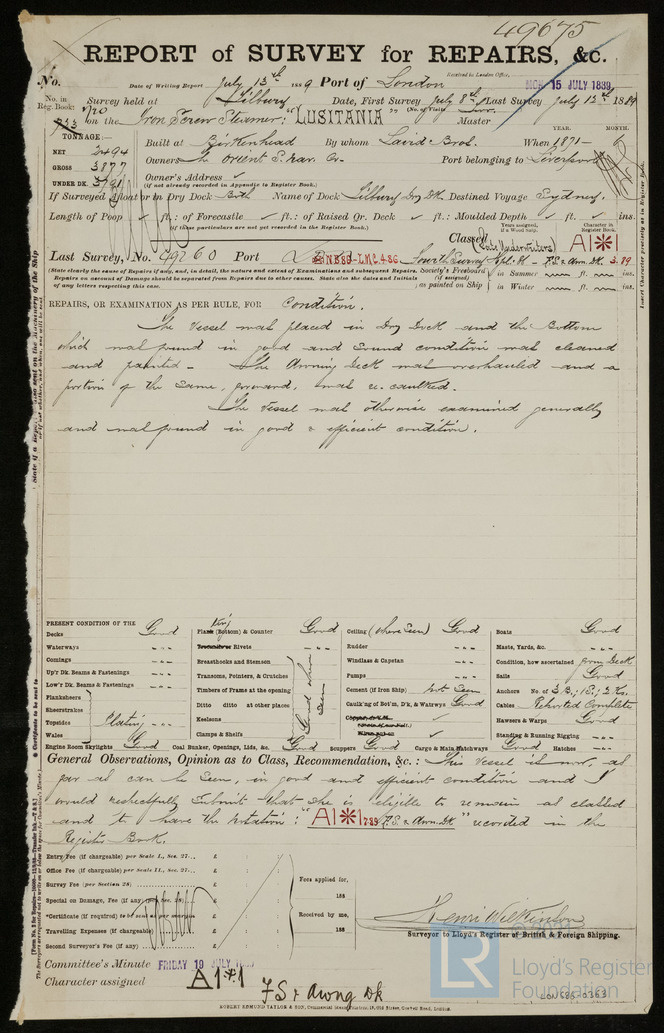 49675
REPORT of SURVEY for REPAIRS, &c.
No. Date of Writing Report July 13th 1889 Port of London Received in London Office, MON. 15 JULY 1889
No. in Reg. Book: Survey held at Tilbury Date, First Survey July 8th Last Survey July 12th 1889
on the Iron Screw Steamer: "LUSITANIA" (No. of Visits) Master
TONNAGE: YEAR. MONTH.
NET 2494 Built at Birkenhead By whom Laird Bros. When 1871 - 6
GROSS 3877 Owners The Orient S. Nav. Co. Port belonging to Liverpool
UNDER DK. 3791 Owner's Address ✓
(if not already recorded in Appendix to Register Book.)
If Surveyed Afloat or in Dry Dock Both Name of Dock Tilbury Dry Dk. Destined Voyage Sydney.
Length of Poop ✓ ft.: of Forecastle ✓ ft.: of Raised Qr. Deck ✓ ft.: Moulded Depth ✓ ft. ✓ ins.
(if these particulars are not yet recorded in the Register Book.)
Years assigned, if a Wood Ship. Character in Register Book.
Classed (Late Underwriters) A1*1
Last Survey, No. 49260 Port Fourth Survey F.S. & Awn. Dk 3.89
(State clearly the cause of Repairs if any, and, in detail, the nature and extent of Examinations and subsequent Repairs.
Repairs on account of Damage should be separated from Repairs due to other causes. State also the dates and Initials
of any letters respecting this case.
Society's Freeboard (if assigned) as painted on Ship in Summer ft. ins.
in Winter ft. ins.
REPAIRS, OR EXAMINATION AS PER RULE, FOR Condition.
The Vessel was placed in Dry Dock and the Bottom
which was found in good and sound condition was cleaned
and painted - The Awning Deck was overhauled and a
portion of the same, forward, was re-caulked.
The Vessel was otherwise examined generally
and was found in good & efficient condition.
PRESENT CONDITION OF THE
Decks Good
Waterways
Comings
Up'r Dk. Beams & Fastenings
Low'r Dk. Beams & Fastenings
Planksheers
Sheerstrakes
Topsides Plating
Wales
Engine Room Skylights Good
Plating (Bottom) & Counter Good
Rivets
Breasthooks and Stemson
Transoms, Pointers, & Crutches
Timbers of Frame at the opening
Ditto ditto at other places
Keelsons
Clamps & Shelfs
Good where seen
Coal Bunker, Openings, Lids, &c. Good
Scuppers Good
Ceiling (where seen) Good
Rudder
Windlass & Capstan
Pumps
Cement (if Iron Ship) not seen
Caulk'ng of Bot'm, D'k, & Watrwys Good
Cargo & Main Hatchways Good Hatches
Boats Good
Masts, Yards, &c.
Condition, how ascertained from Deck
Sails Good
Anchors No. of 3 B.; 1 S.; 2 Ks.
Cables Reported Complete
Hawsers & Warps Good
Standing & Running Rigging
General Observations, Opinion as to Class, Recommendation, &c.: This Vessel is now, as
far as can be seen, in good and efficient condition and I
would respectfully submit that she is eligible to remain as classed
and to have the Notation: "A1*1 7.89 F.S. & Awn. Dk" recorded in the
Register Book.
Entry Fee (if chargeable) per Scale I., Sec. 27... £
Office Fee (if chargeable) per Scale II., Sec. 27... £
Survey Fee (per Section 28) £
Special or Damage, Fee (if any) £
*Certificate (if required) to be sent as per margin
Travelling Expenses (if chargeable) £
Second Surveyor's Fee (if any) £
Fees applied for, 188
Received by me, 188
Henri Wilkinson
Surveyor to Lloyd's Register of British & Foreign Shipping.
Committee's Minute FRIDAY 19 JULY
Character assigned A1*1
F S & Awng Dk
LR Lloyd's Register Foundation
LON 685-0363